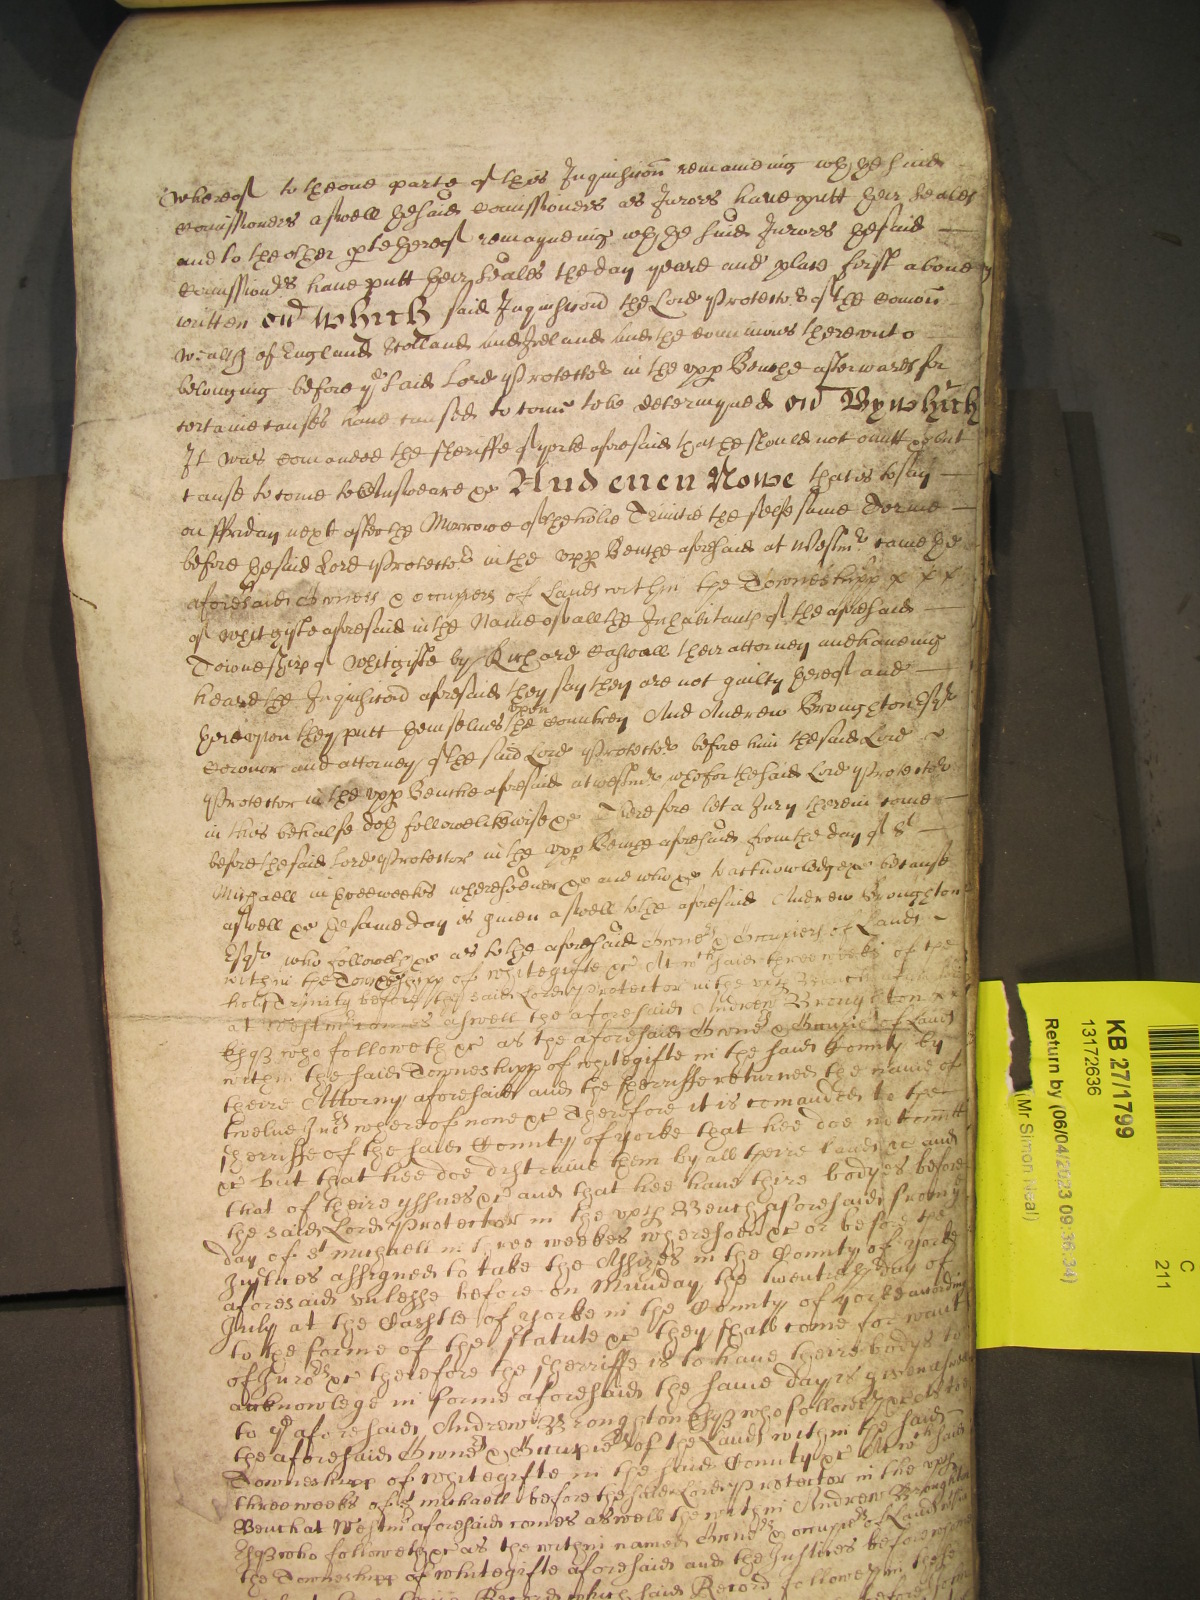 whereof to the one parte of this Inquisicon remaineing wth the said
Comissioners aswell the said Comissioners as Jurors have putt their Seales
and to the other pte thereof remayneing wth the said Jurors the said
Comissionrs have putt their Seales the day yeare and place first above
written on which said Inquisicon the Lord Protector of the Comon
wealth of England Scotland and Ireland and the dominions thereunto
belonging before ye said Lord Protector in the upp Benche afterwards for
certaine causes have caused to come to be determyned on By which
It was comanded the sheriffe of yorke aforesaid that he should not omitt &c but
cause to come to Answeare &c And even Nowe that is to say
on ffriday next after the Morrowe of the holie Trinitie the selfe same Terme
before the said Lord Protector in the upp Benche aforesaid at Westmr came the
aforesaid Owners & occupiers of Lands within the Towneshipp
of Whitgifte aforesaid in the Name of all the Inhabitants of the aforesaid
Towneshipp of Whitgifte by Richard Caswall their attorney and haveing
heard the Inquisicon aforesaid they say they are not guilty thereof and
thereupon they putt themselves upon the Countrey And Andrew Broughton Esqr
Coronor and attorney of the said Lord Protector before him the said Lord
Protector in the upp Benche aforesaid at Westmr who for the said Lord Protector
in this behalfe doth followe likewise &c Therefore let a Jury therein come
before the said Lord Protector in the upp Benche aforesaid from the day of St
Michaell in three weekes wheresoever &c and who &c to acknowledge &c because
aswell &c the same day is given aswell to the aforesaid Andrew Broughton
Esqr who followeth &c as to the aforesaid Owners & Occupiers of Lands
within the Towneshipp of whitegifte &c At wch said three weekes of the
holy Trynity before the said Lord Protector in the upp Bench aforesaid
at Westmr comes aswell the aforesaid Andrew Broughton
Esqr who followeth &c as the aforesaid Owners & Occupiers of Lands
within the said Towneshipp of whitegifte in the said County by
theire Attorny aforesaid and the Sherriffe returned the name of
twelve Jurs whereof none &c Therefore it is comanded to the
Sherriffe of the said County of yorke that hee doe not omitt
&c but that hee doe distraine them by all theire lands &c and
that of theire yssues &c and that hee have thire bodyes before
the said Lord Protector in the upp Bench aforesaid from ye
day of St michaell in three weekes wheresoever &c or before the
Justices assigned to take the Assizes in the County of yorke
aforesaid unlesse before on Munday the twentieth day of
July at the Castle of yorke in the County of yorke according
to the forme of the Statute &c they shall come for want
of Jurors &c therefore the Sherriffe is to have theire bodys to
acknowlege in forme aforesaid the same day is given aswell
to ye aforesaid Andrew Broughton Esqr who followeth &c as to
the aforesaid Owners & Occupiers of the Lands within the said
Towneshipp of whitegifte in the said County &c At wch said
three weekes of St michaell before the said Lord Protector in the upp
Bench at Westmr aforesaid comes aswell the within Andrew Broughton
Esqr who followeth &c as the within named Owners & occupiers of Lands within
the Towneshipp of whitegifte aforesaid and the Justices before whome
Record which said Record followeth in these
KB 27/1799
13172636
Return by (06/04/2023 09:36:34)
(Mr Simon Neal)
C
211